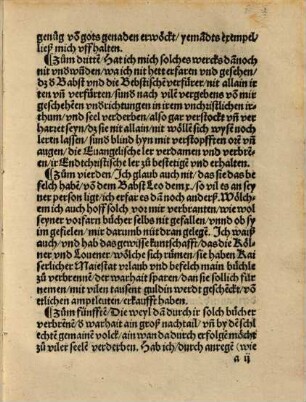 genůg võ gots genaden erwöckt / yemãdts exempel
ließ mich uff halten.
¶ Zům dritten̄ / Hat ich mich solches wercks dãnoch
nit vnderwũden / wa ich nit hett erfaren vnd gesehen /
dz d̕ Babst vnd die Bebstischē verfürer / nit allain ir̃
ten vñ verfürten / sund̕ nach vile vergebens võ mir
geschehēn vndrichtungen in irem vnchristlichen ir̃
thum / vnd seel verderben / also gar verstockt vñ ver
hartet seyn / dz sie nit allain / nit wöllē sich wyst noch
leren lassen / sund̕ blind hyn mit verstopfften orē vñ
augen / die Euangelische ler verdamen vnd verbrē
nen / ir Endtchristische ler zů bestetigē vnd erhalten.
¶ Zům vierden / Ich glaub auch nit / das sie das be
felch habē / võ dem Babst Leo dem .x. so vil es an sey
ner person ligt / ich erfar es dã noch anderst. Wölch̄
em ich auch hoff solch vor mir verbranten / wie wol
seyner vorfarn bücher selbs nit gefallen / vnnd ob sy
im gefielen / mir darumb nüt dran gelegē. Ich waiß
auch / vnd hab das gewisse kuntschafft / das die Köl
ner / vnd Louener / wölche sich rümen / sie haben Kai
serlicher Maiestat vrlaub vnd befelch main büchle
zů verbrennē / der warhait sparen / dan sie sollich für
nemen / mit vilen tausent guldin werdt geschēck / võ
etlichen amptleuten / erkaufft haben.
¶ Zům fünfftē / Die weyl dañ durch ir solch bücher
verbrēnē / d̕ warhait ain groß nachtail / vñ by dē schl
echtē gemainē volck / ain wan da durch erfolgē möcht
zů viler seelē verderben. Hab ich / durch anregē (wie
a ij